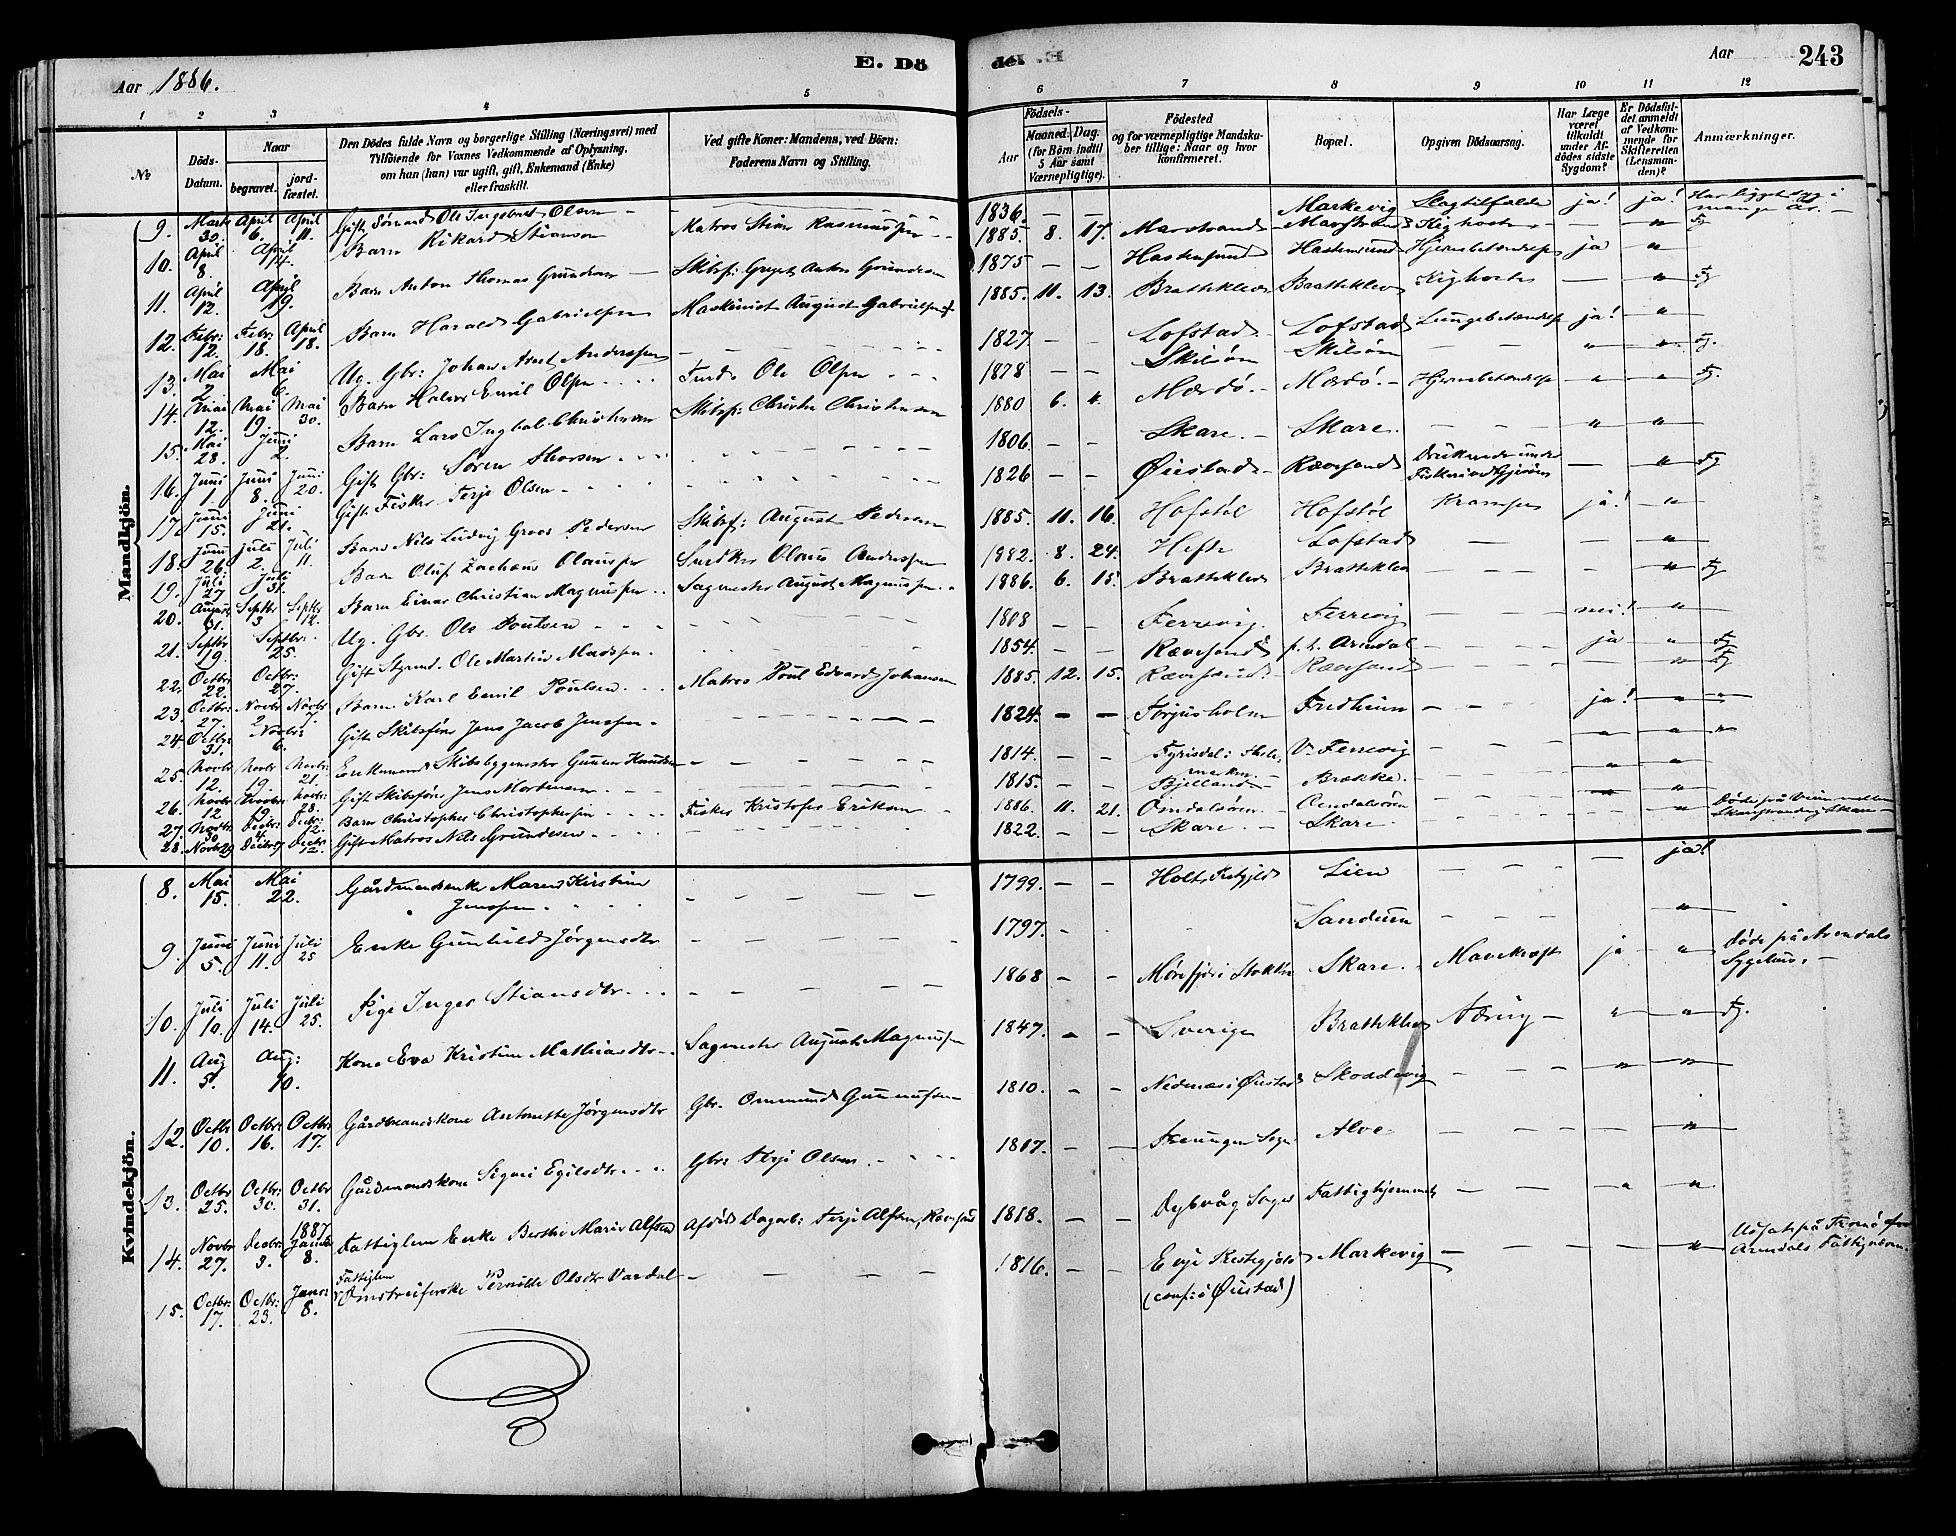 Aar 1886.
E. Dö
1 2 3 4 5
№
Döds-Datum.
Naar
begravet.
jordfæstet.
Den Dödes fulde Navn og borgerlige Stilling (Næringsvei) med
Tilföiende for Voxnes Vedkommende af Oplysning,
om han (hun) var ugift, gift, Enkemand (Enke)
eller fraskilt.
Ved gifte Koner: Mandens, ved Börn:
Faderens Navn og Stilling.
Mandkjön.
9. Marts 30. April 6. April 11. Gift Ole Ingebret Olsen
10. April 8. April 14. Barn Rikard Stiansen Matros Stian Rasmussen
11. April 12. April 19. Barn Anton Thomas Grundesen Skibsf: Anton Grundesen
12. Febr: 12. Febr: 18. April 18. Barn Harald Gabrielsen Maskinist August Gabrielsen
13. Mai 2. Mai 6. Ug. Gbr: Johan Anderssen
14. Mai 12. Mai 19. Mai 30. Barn Halvor Emil Olsen Ole Olsen
15. Mai 28. Juni 2. Barn Lars Christensen Skibsf: Christen Christensen
16. Juni 1. Juni 8. Juni 20. Gift Gbr: Sören Thorsen
17. Juni 15. Juni 21. Gift Fisker Terje Olsen
18. Juni 26. Juli 2. Juli 11. Barn Nils Ludvig Groos Pedersen Skibsf: August Pedersen
19. Juli 27 Juli 31. Barn Oluf Zachæus Olaussen Snedker Olaus Anderssen
20. August 31. Septbr 3 Septbr 12. Barn Einar Christian Magnussen Sagmester August Magnussen
21. Septbr 19. Septbr: 25. Ug. Gbr. Ole Poulsen
22. Octbr 22. Octbr: 27. Gift Styrmd. Ole Martin Madsen
23. Octbr: 27. Novbr 2 Novbr 7. Barn Karl Emil Poulsen Matros Poul Edvard Johansen
24. Octbr: 31. Novbr: 6. Gift Skibsförer Jens Jacob Jenssen
25. Novbr 12. Novbr 19. Novbr: 21. Enkemand Skibsbyggmester Gunnar Knudsen
26. Novbr 12 Novbr 19 Novbr: 28. Gift Skibsförer Jens Mortensen
27. Novbr: 30 Decbr: 4. Decbr: 12. Barn Christopher Christophersen Fisker Kristofer Eriksen
28. Novbr 29 Decbr Decbr 12. Gift Matros Nils Grundesen
Kvindekjön.
8. Mai 15. Mai 22. Gårdmandsenke Maren Kirstine
Jenssen
9. Juni 5. Juni 11. Juli 25 Enke Gunhild Jörgensdtr
10. Juli 10. Juli 14. Juli 25. Pige Inger Stiansdtr
11. Aug 5. Aug: 10. Kone Eva Kristine Mathiasdtr Sagmester August Magnussen
12. Octbr 10. Octbr: 16. Octbr 17. Gårdmandskone Antonette Jörgensdtr Gbr. Ommund Gunnufsen
13. Octbr 25. Octbr: 30. Octbr 31. Gårdmandskone Signi Egilsdtr Gbr: Terje Olsen
14. Novbr 27. Decbr 3. 1887 Januar 8. Fattiglem Enke Berthe Marie Alfsen Afdöd Dagarb: Terje Alfsen, Rævesand
15. Octbr: 17. Octbr: 23. Janr: 8. Fattiglem
Omstreiferske Pernille Olsdtr Vardal
del .E
Aar 243
6 7 8 9 10 11 12
Födsels-
Aar
Maaned: Dag.
(for Börn indtil
5 Aar samt
Værnepligtige).
Födested
og for værnepligtige Mandskaber tillige: Naar og hvor
konfirmeret.
Bopæl.
Opgiven Dödsaarsag.
Har Læge
været
tilkaldt
under Afdödes sidste
Sygdom?
Er Dödsfaldet anmeldt
af Vedkommende for
Skifteretten
(Lensmanden)?
Anmærkninger.
1836. Markevig Slagtilfælde ja! ja! Har ligget syg i
mange År.
1885. 8. 17. Marstrand Marstrand Kighoste
1875 Hastensund Hastensund Hjernebetændelse ja
1885. 11. 13. Brattekleiv Brattekleiv Kighoste
1827. Lofstad Lofstad Lungebetændelse ja!
1878 Skilsöen Skilsöen
1880 6. 4. Mærdö. Mærdö. Hjernebetændelse
1806. Skare. Skare.
1826 Öiestad Rævesand Druknede under
1885. 11. 16. Hofstöl Hofstöl Kramper ja!
1882. 8. 24. Hefte Lofstad
1886. 6. 15. Brattekleiv Brattekleiv
1808 Ferrevig Ferrevig nei!
1854. Rævesand Arendal ja
1885. 12. 15. Rævesand Rævesand
1824. Torjusholm Fredheim ja!
1814. Fyrisdal: Thelemarken V. Ferrevig
1815. Bjelland Brække.
1886. 11. 21. Omdalsören Omdalsören Döde på
1822. Skare. Skare.
1799. Holt Prstgjeld Lien ja!
1797. Sandum
1868 Mörefjær i Stokken Skare. Mavekræft ja Döde på Arendals
Sygehus.
1847. Sverige Brattekleiv Tæring
1810. Nedenæs i Öiestad Skoddevig
1817. Treungen Sogn Alve
1818. Dybvåg Sogn Fattighjemmet
1816. Evje Prestegjeld Markevig Udsat på Tromö for
Arendals Fattigvæsen.
(conf: i Öiestad)